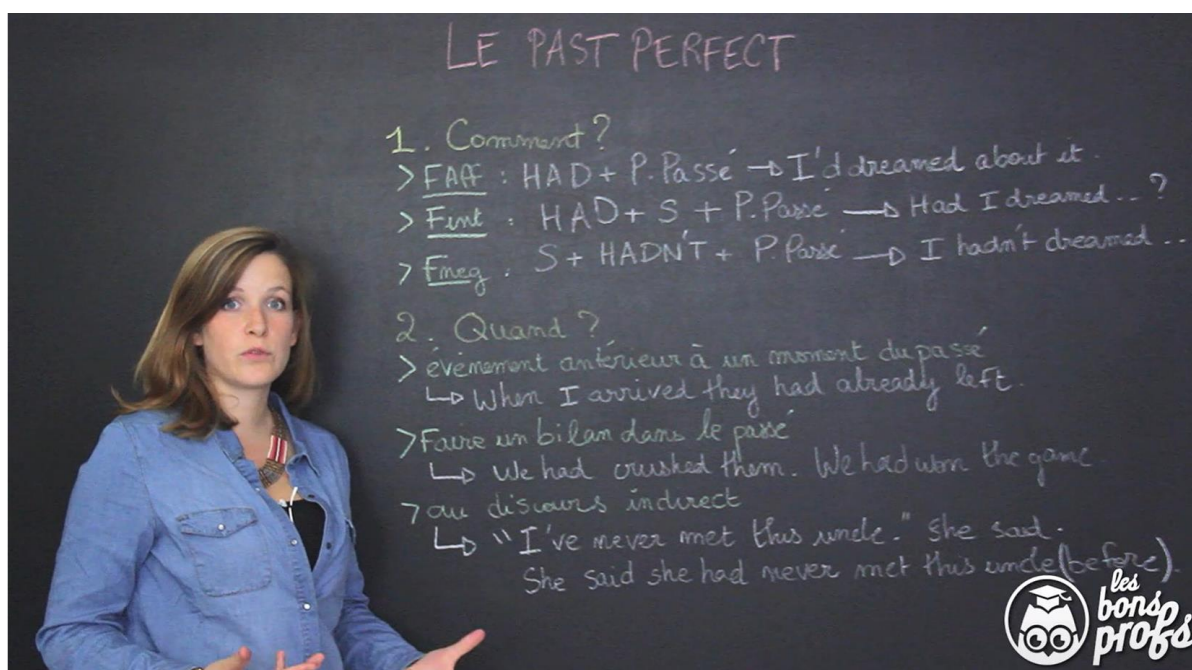 LE PAST PERFECT
1. Comment ?
> FAff : HAD + P. Passé → I'd dreamed about it.
> Fint : HAD + S + P. Passé → Had I dreamed ... ?
> Fneg : S + HADN'T + P. Passé → I hadn't dreamed ...
2. Quand ?
> évènement antérieur à un moment du passé
↳ When I arrived they had already left.
> Faire un bilan dans le passé
↳ We had crushed them. We had won the game.
> au discours indirect
↳ "I've never met this uncle." She said.
She said she had never met this uncle (before).
les
bons
profs